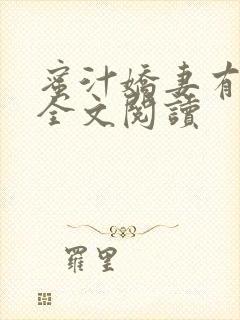 蜜汁嬌妻有
全文閱讀
羅里